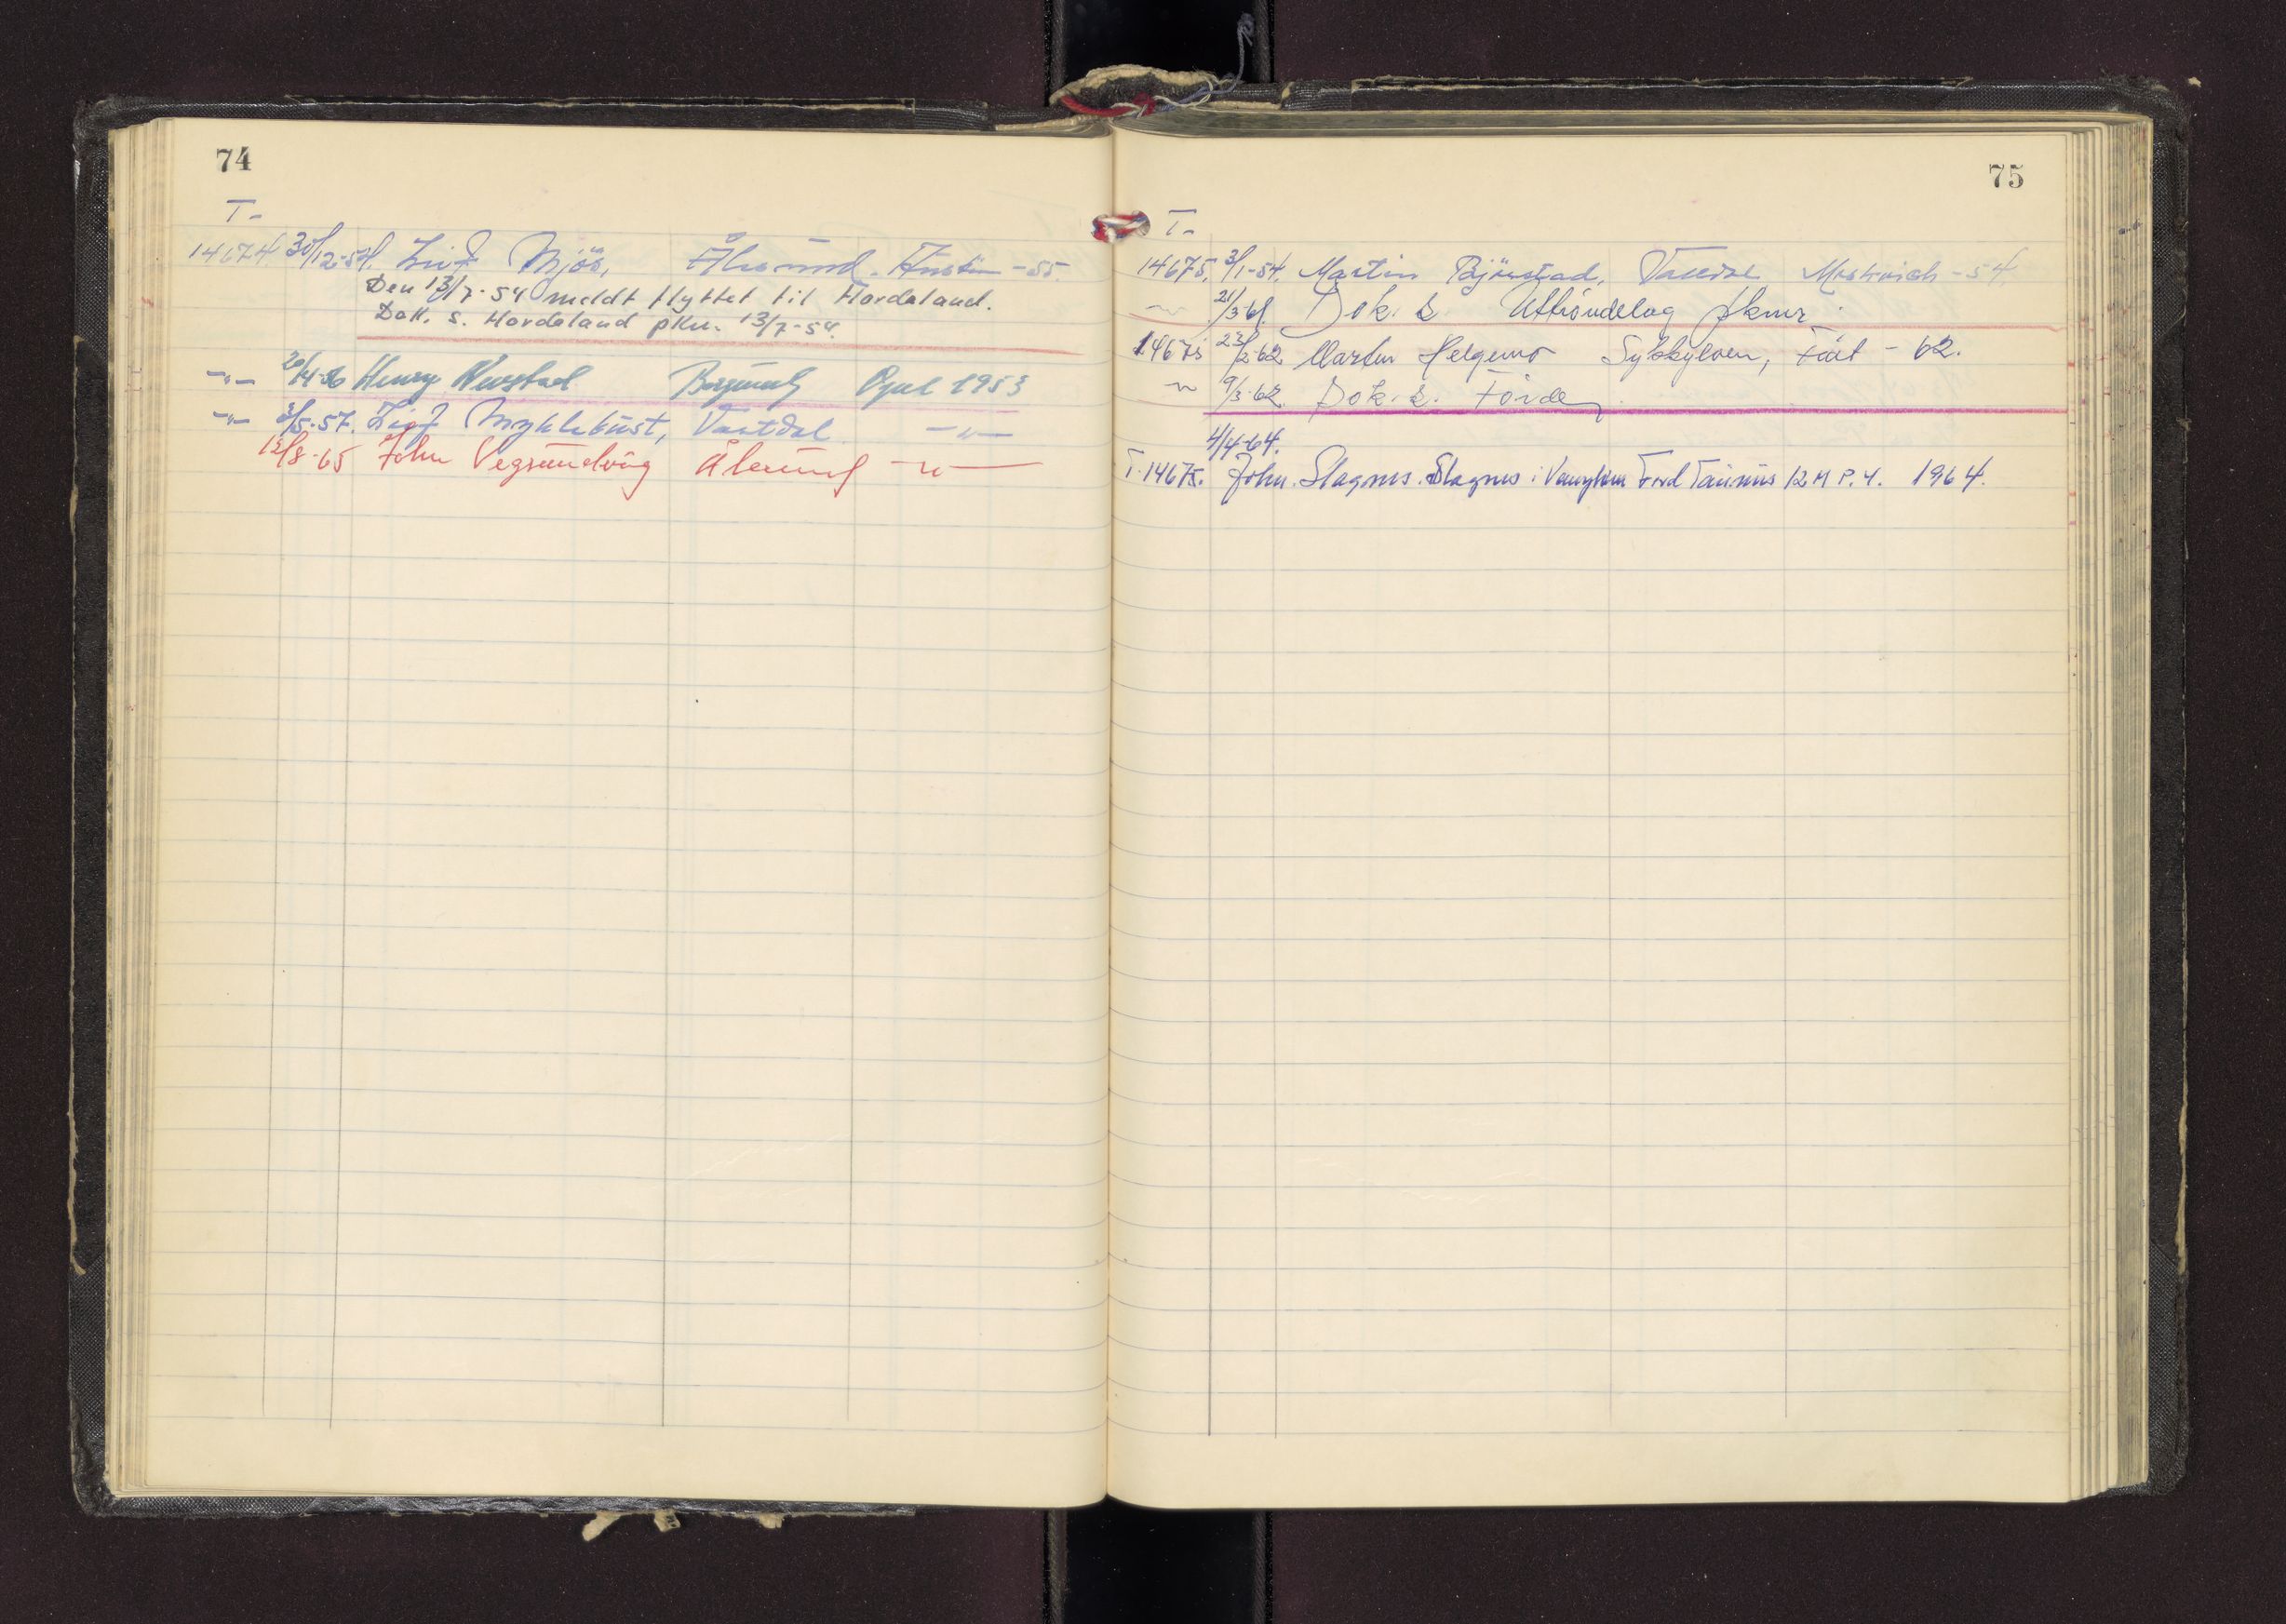 74
T-
14674. 30/12-54. Leif Mjös, Ålesund. Austin -55.
Den 13/7-54 meldt flyttet til Hordaland.
Dok. s. Hordaland pkm. 13/7-54.
-"- 20/4-56 Henry Opel 1953
-"- 3/5-57. Leif Myklebust, Vartdal -"-
12/8-65 John Vegsundvåg Ålesund -"-
75
T-
14675. 3/1-54. Martin Bjørstad, Moskvich -54.
-"- 21/3-61. Dok. s. Uttröndelag pkmr.
14675 23/2-62 Martin Helgemo Sykkylven, Fiat - 62.
-"- 9/3-62. Dok. s. Förde
4/4-64.
T-14675. John. Slagnes. Slagnes i Vanylven Ford Taunus 12 M P.4. 1964.